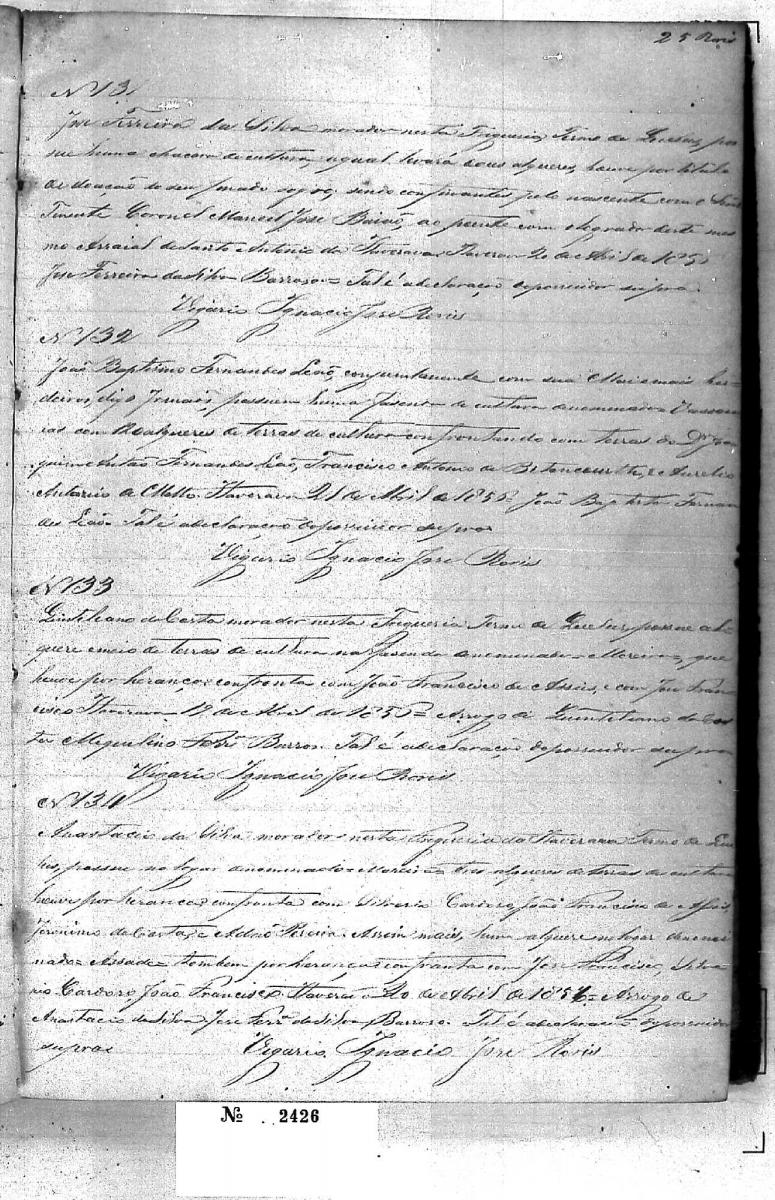 25 Roris
N 131
José Ferreira da Silva morador nesta Freguesia, Termo de Queluz, pos
sue huma chacara de cultura, a qual levará dous alqueres, houve por titulo
de doação de seu finado sogro, sendo confinantes pelo nascente com o
Tenente Coronel Manoel José Baião, ao poente com o logrador deste mes
mo Arraial de Santo Antonio da Itaverava. Itaverava 20 de Abril de 1856
José Ferreira da Silva Barroso = Tal é a declaração do possuidor supra.
Vigario Ignacio José Roris
N 132
João Baptista Fernandes Leão, conjuntamente com sua Mai e mais her
deiros, digo Irmaõs, possuem huma fasenda de cultura denominada = Vassou
ras com alqueres de terras de cultura confrontando com terras do Dr. Joa
quim Antão Fernandes Leão, Francisco Antonio de Betancourth, e Aurelio
de Mello. Itaverava 21 de Abril de 1856. João Baptista Fernan
des Leão. Tal é a declaração do possuidor supra
Vigario Ignacio José Roris
N 133
Quintiliano da Costa morador nesta Freguesia Termo de Queluz, possue al
quere e meio de terras de cultura na Fasenda denominada = Moreira =, que
houve por herança: confronta com João Francisco de Assis, e com José Fran
cisco. Itaverava 19 de Abril de 1856 = Arrogo de Quintiliano da Cos
ta Barros. Tal é a declaração do possuidor supra
Vigario Ignacio José Roris
N 134
Anastacio da Silva morador nesta Freguesia da Itaverava Termo de Que
lus, possue no logar denominado = Moreira = tres alqueres de terras de cultura
houve por herança confronta com Silverio Cardoso, João Francisco de Assis,
Jeronimo da Costa, e Adão Pereira. Assim mais, hum alquere no logar denomi
nado = Assade = tambem por herança confronta com José Francisco, Silve
rio Cardoso João Francisco. Itaverava 20 de Abril de 1856 = Arrogo de
Anastacio da Silva José Ferrª da Silva Barroso. Tal é a declaração do possuidor
supra
Vigario Ignacio José Roris
№ 2426